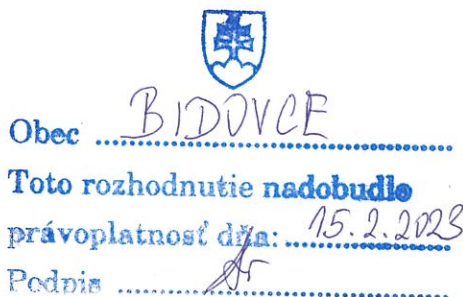 Obec BIDOVCE
Toto rozhodnutie nadobudlo
právoplatnosť dňa: 15.2.2023
Podpis